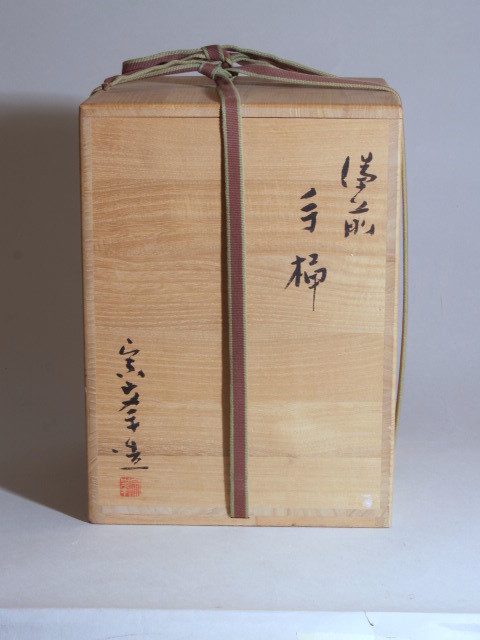 備前
手桶
宗孝造